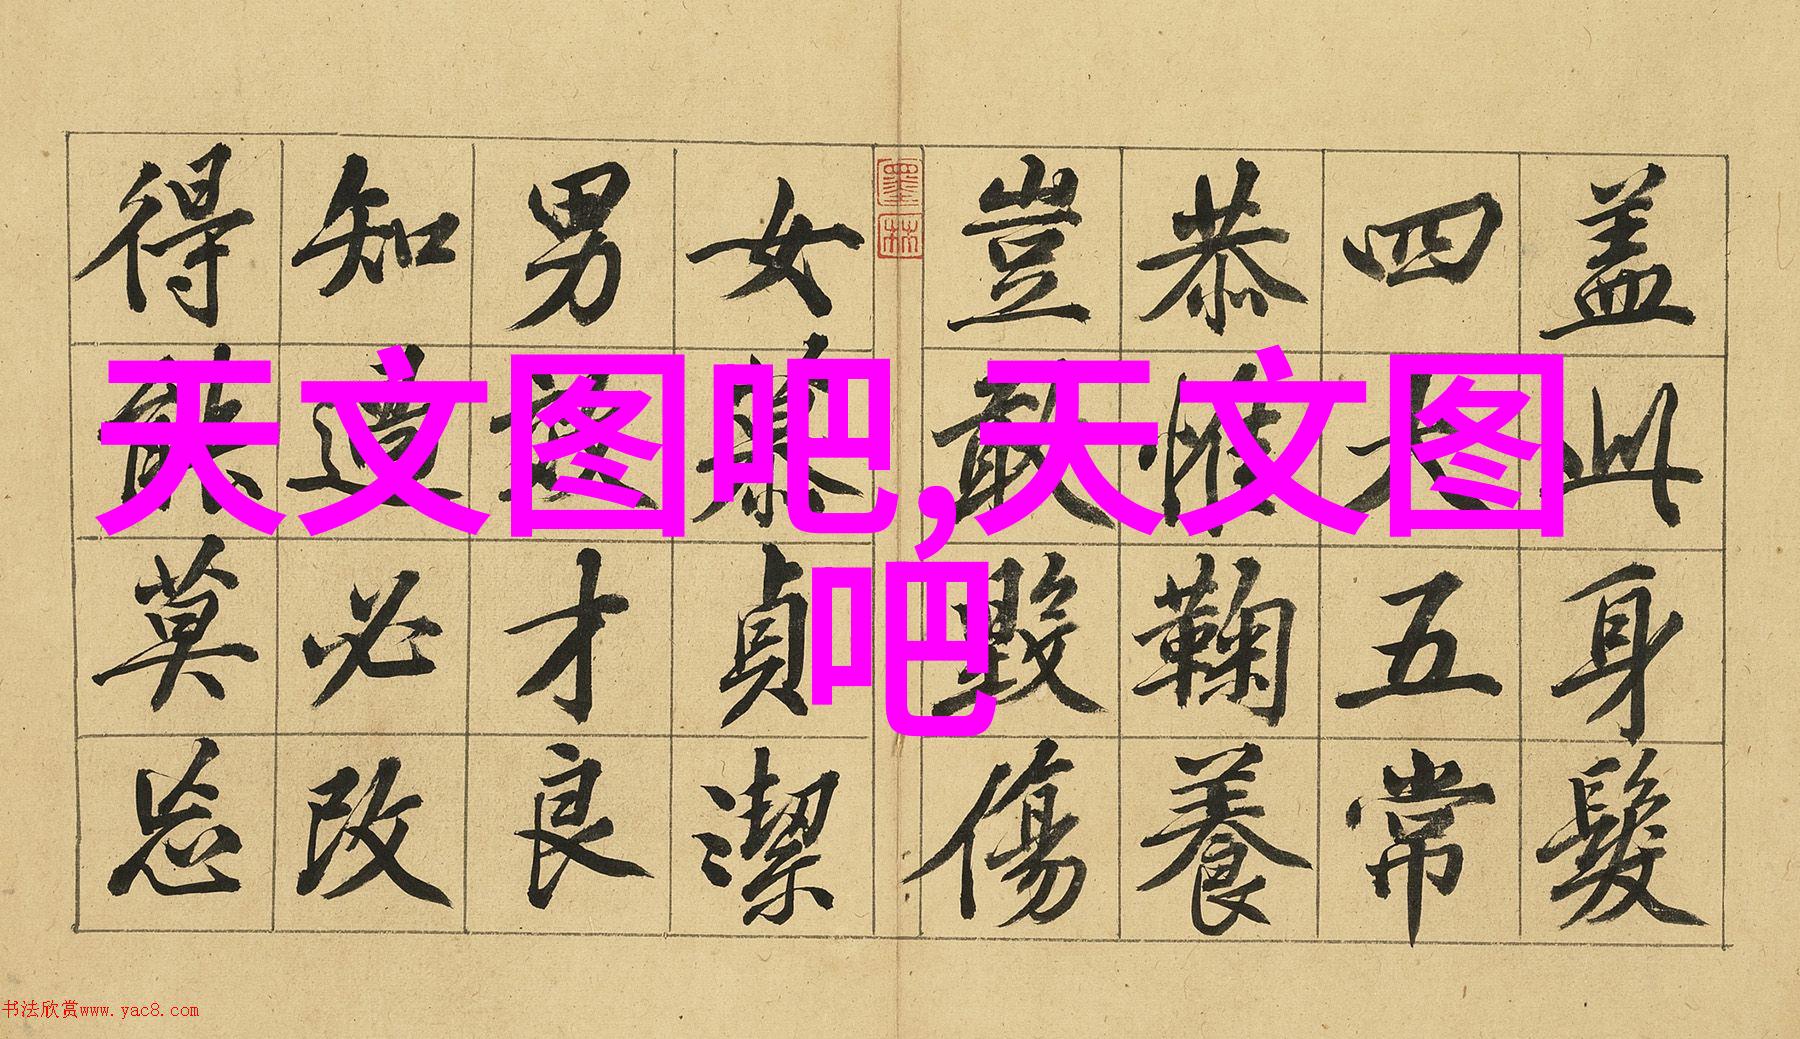 天文图吧,天文图
吧
盖此身髮
四大五常
恭惟鞠養
豈敢毀傷
墨林
女慕貞潔
男才良
知過必改
得能莫忘
书法欣赏www.yac8.com